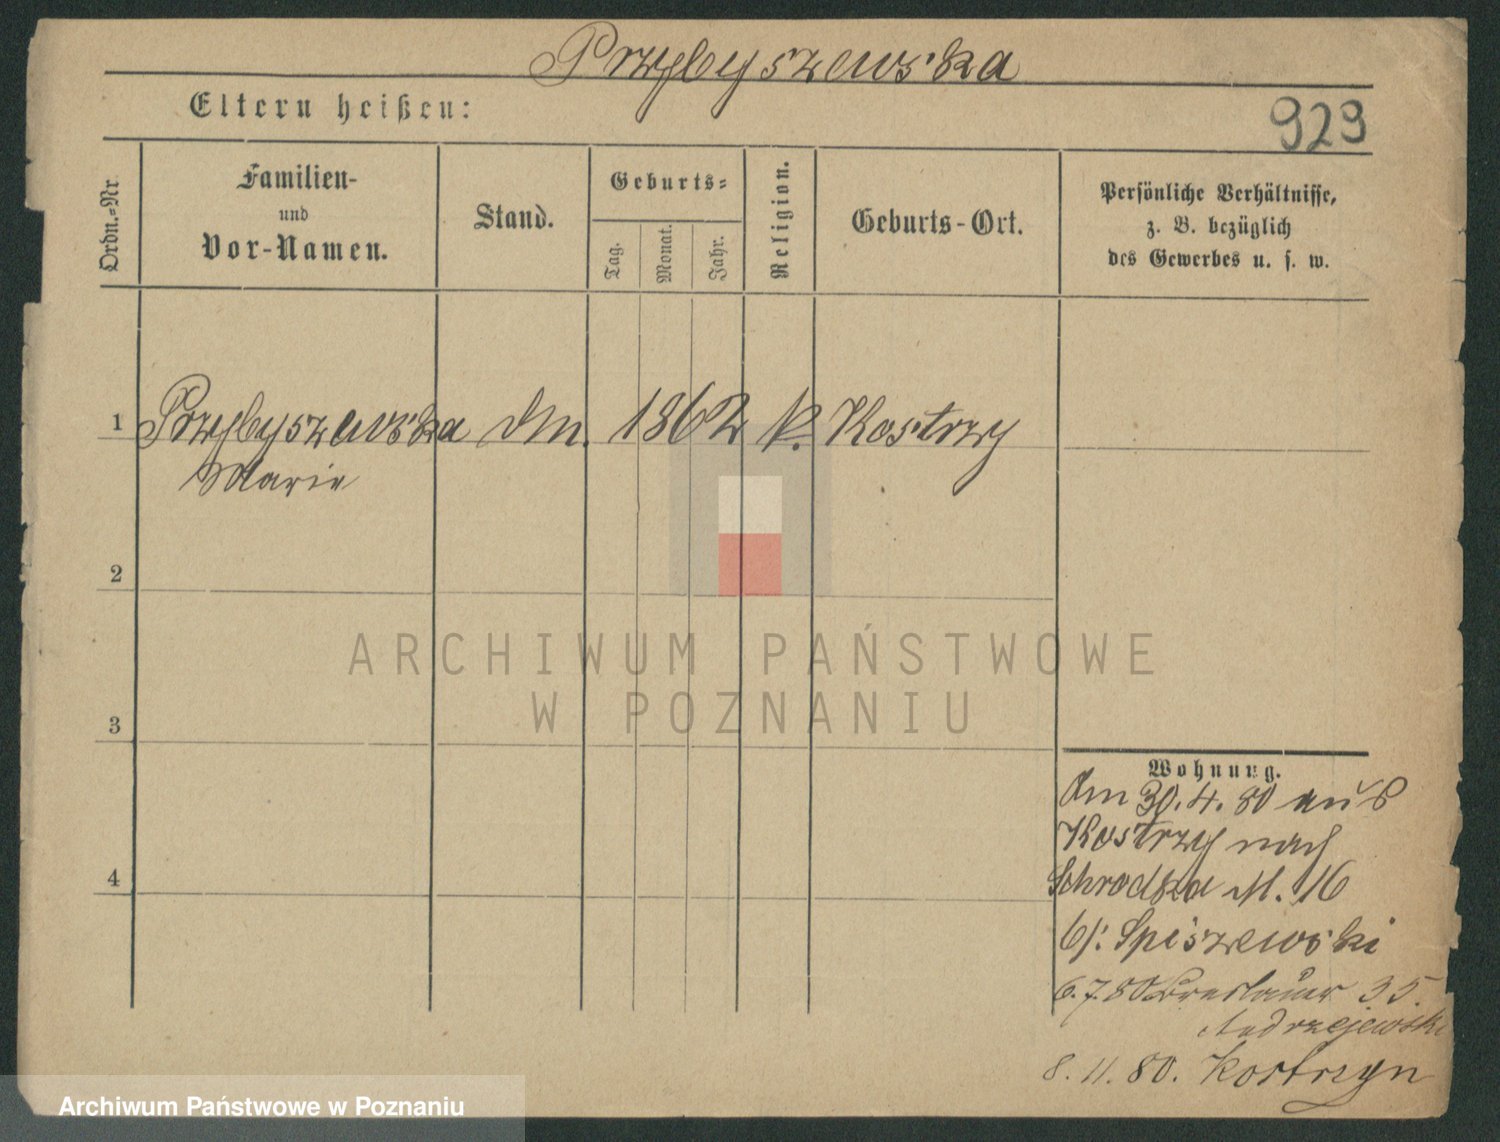 Przybyszewska
Eltern heißen:
929
Ordn.-Nr.
Familien-
und
Vor-Namen.
Stand.
Geburts-
Tag.
Monat.
Jahr.
Religion.
Geburts-Ort.
Persönliche Verhältnisse,
z. B. bezüglich
des Gewerbes u. s. w.
1 Przybyszewska Dm. 1862 k. Kostrzy
Marie
2
3
4
ARCHIWUM PAŃSTWOWE
W POZNANIU
Wohnung.
Am 30.4.80 aus
Kostrzy nach
Schrodka M. 16
b/: Spiszewski
6.7.80 Breslauer 35.
Andrzejewski
8.11.80. Kostrzyn
Archiwum Państwowe w Poznaniu